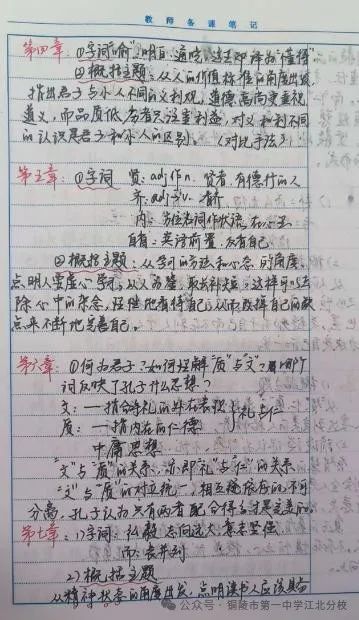 教师备课笔记
第四章：①字词"喻"，明白，通晓，这里可译为"懂得"
②概括主题：从人的价值标准的角度出发，
指出君子与小人不同的义利观，道德高尚重视
道义，而品质低劣者只注重利益，对义和利不同
的认识是君子和小人的区别。（对比手法）
第五章：①字词 贤：adj作n. 贤者，有德行的人
齐：adj作v. 看齐
内：方位名词作状语，在心里
自省：宾语前置，反省自己
②概括主题：从学习的方法和心态的角度，
点明人要虚心学习，以人为鉴，取长补短。这样可以去
除心中的杂念，经常地看待自己，从而改掉自己的缺
点来不断地完善自己。
第六章：①何为君子？如何理解"质"与"文"？
词反映了孔子什么思想？
文：—指合乎礼的外在表现
质：—指内在的仁德
礼与仁
中庸思想
"文"与"质"的关系，亦即"礼"与"仁"的关系
"文"与"质"的对立统一，相互依存的，不可
分离，孔子认为只有两者配合得当才是完美的。
第七章：1)字词：弘毅 志向远大，意志坚强
而：表并列
2)概括主题
从精神状态的角度出发，点明读书人应该具备
公众号·铜陵市第一中学江北分校